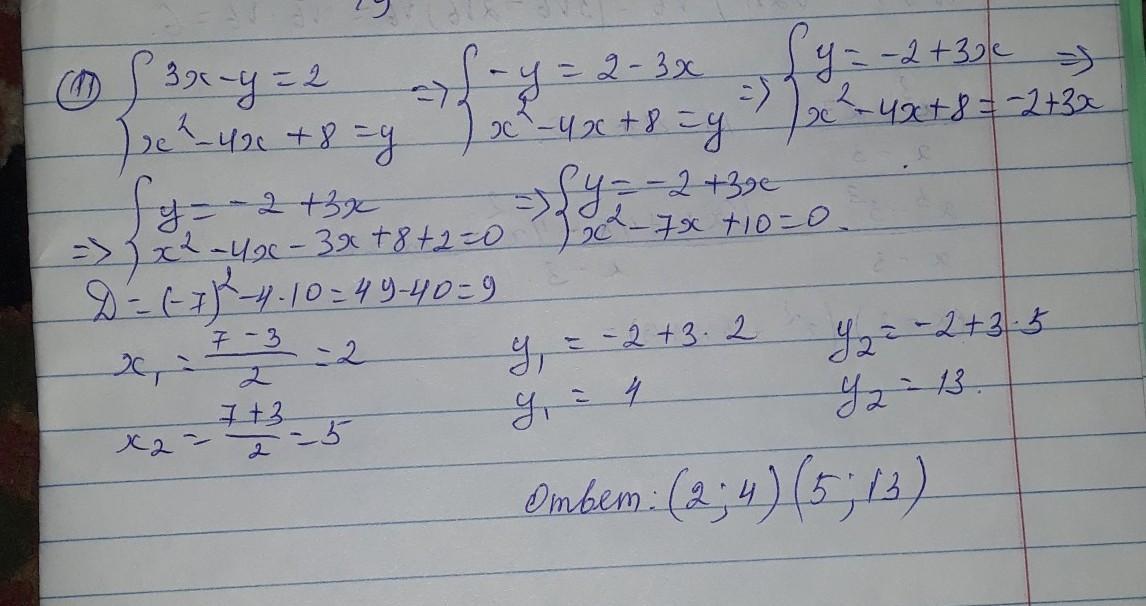 (11) { 3x - y = 2 ; x² - 4x + 8 = y => { -y = 2 - 3x ; x² - 4x + 8 = y => { y = -2 + 3x ; x² - 4x + 8 = -2 + 3x =>
=> { y = -2 + 3x ; x² - 4x - 3x + 8 + 2 = 0 => { y = -2 + 3x ; x² - 7x + 10 = 0.
D = (-7)² - 4·10 = 49 - 40 = 9
x₁ = (7 - 3)/2 = 2    y₁ = -2 + 3·2    y₂ = -2 + 3·5
x₂ = (7 + 3)/2 = 5    y₁ = 4    y₂ = 13.
Ответ: (2; 4) (5; 13)